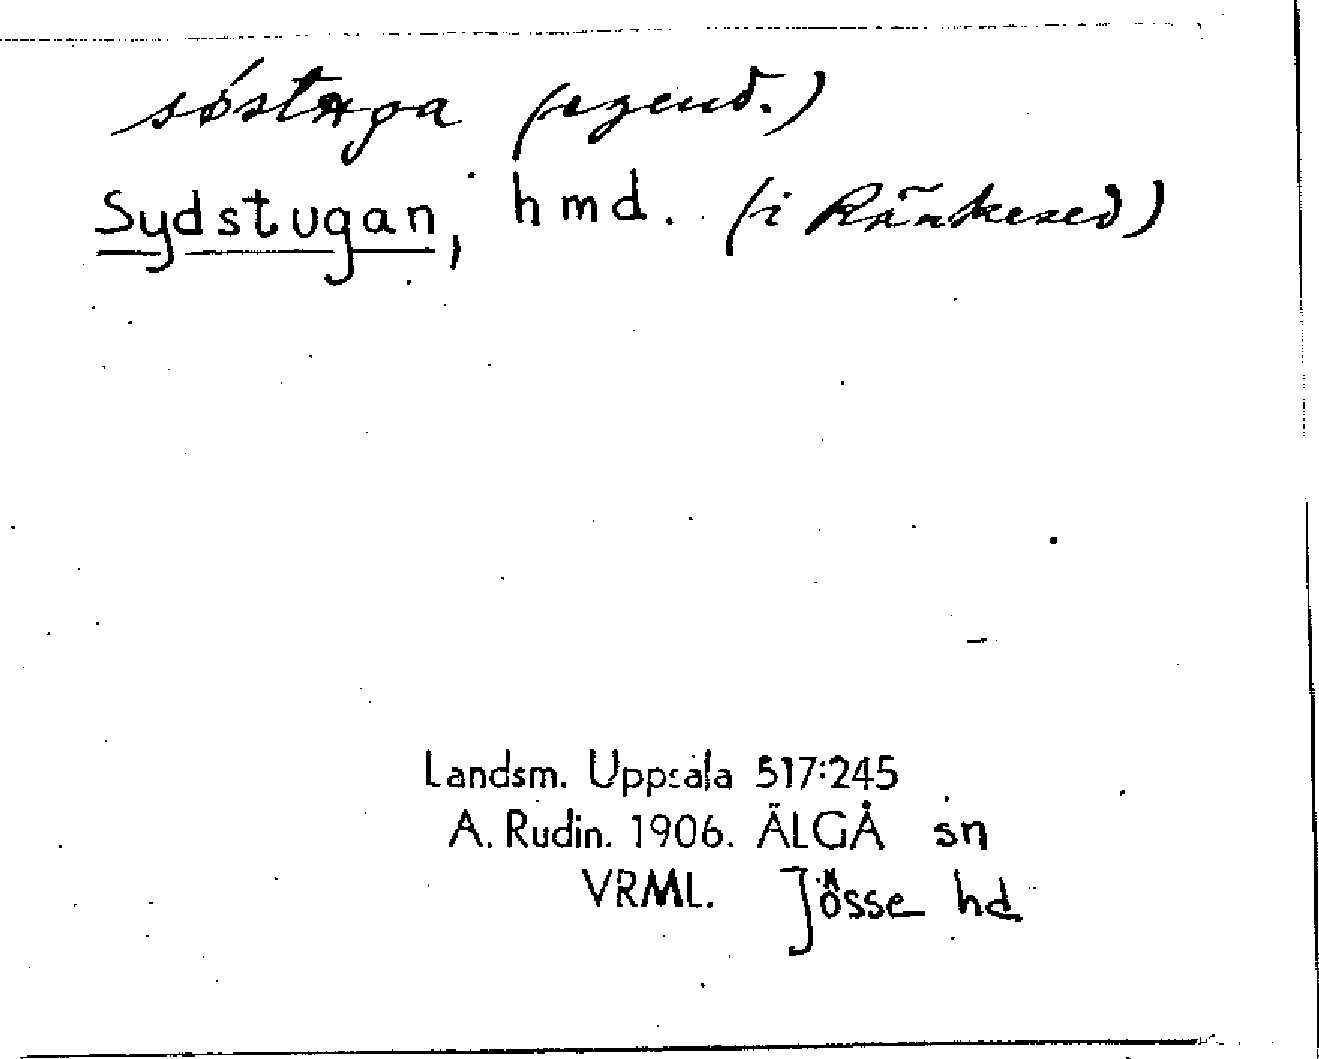 (egend.)
Sydstugan, hmd. (i Ränkesed)
Landsm. Uppsala 517:245
A. Rudin. 1906. ÄLGÅ sn
VRML. Jösse hd